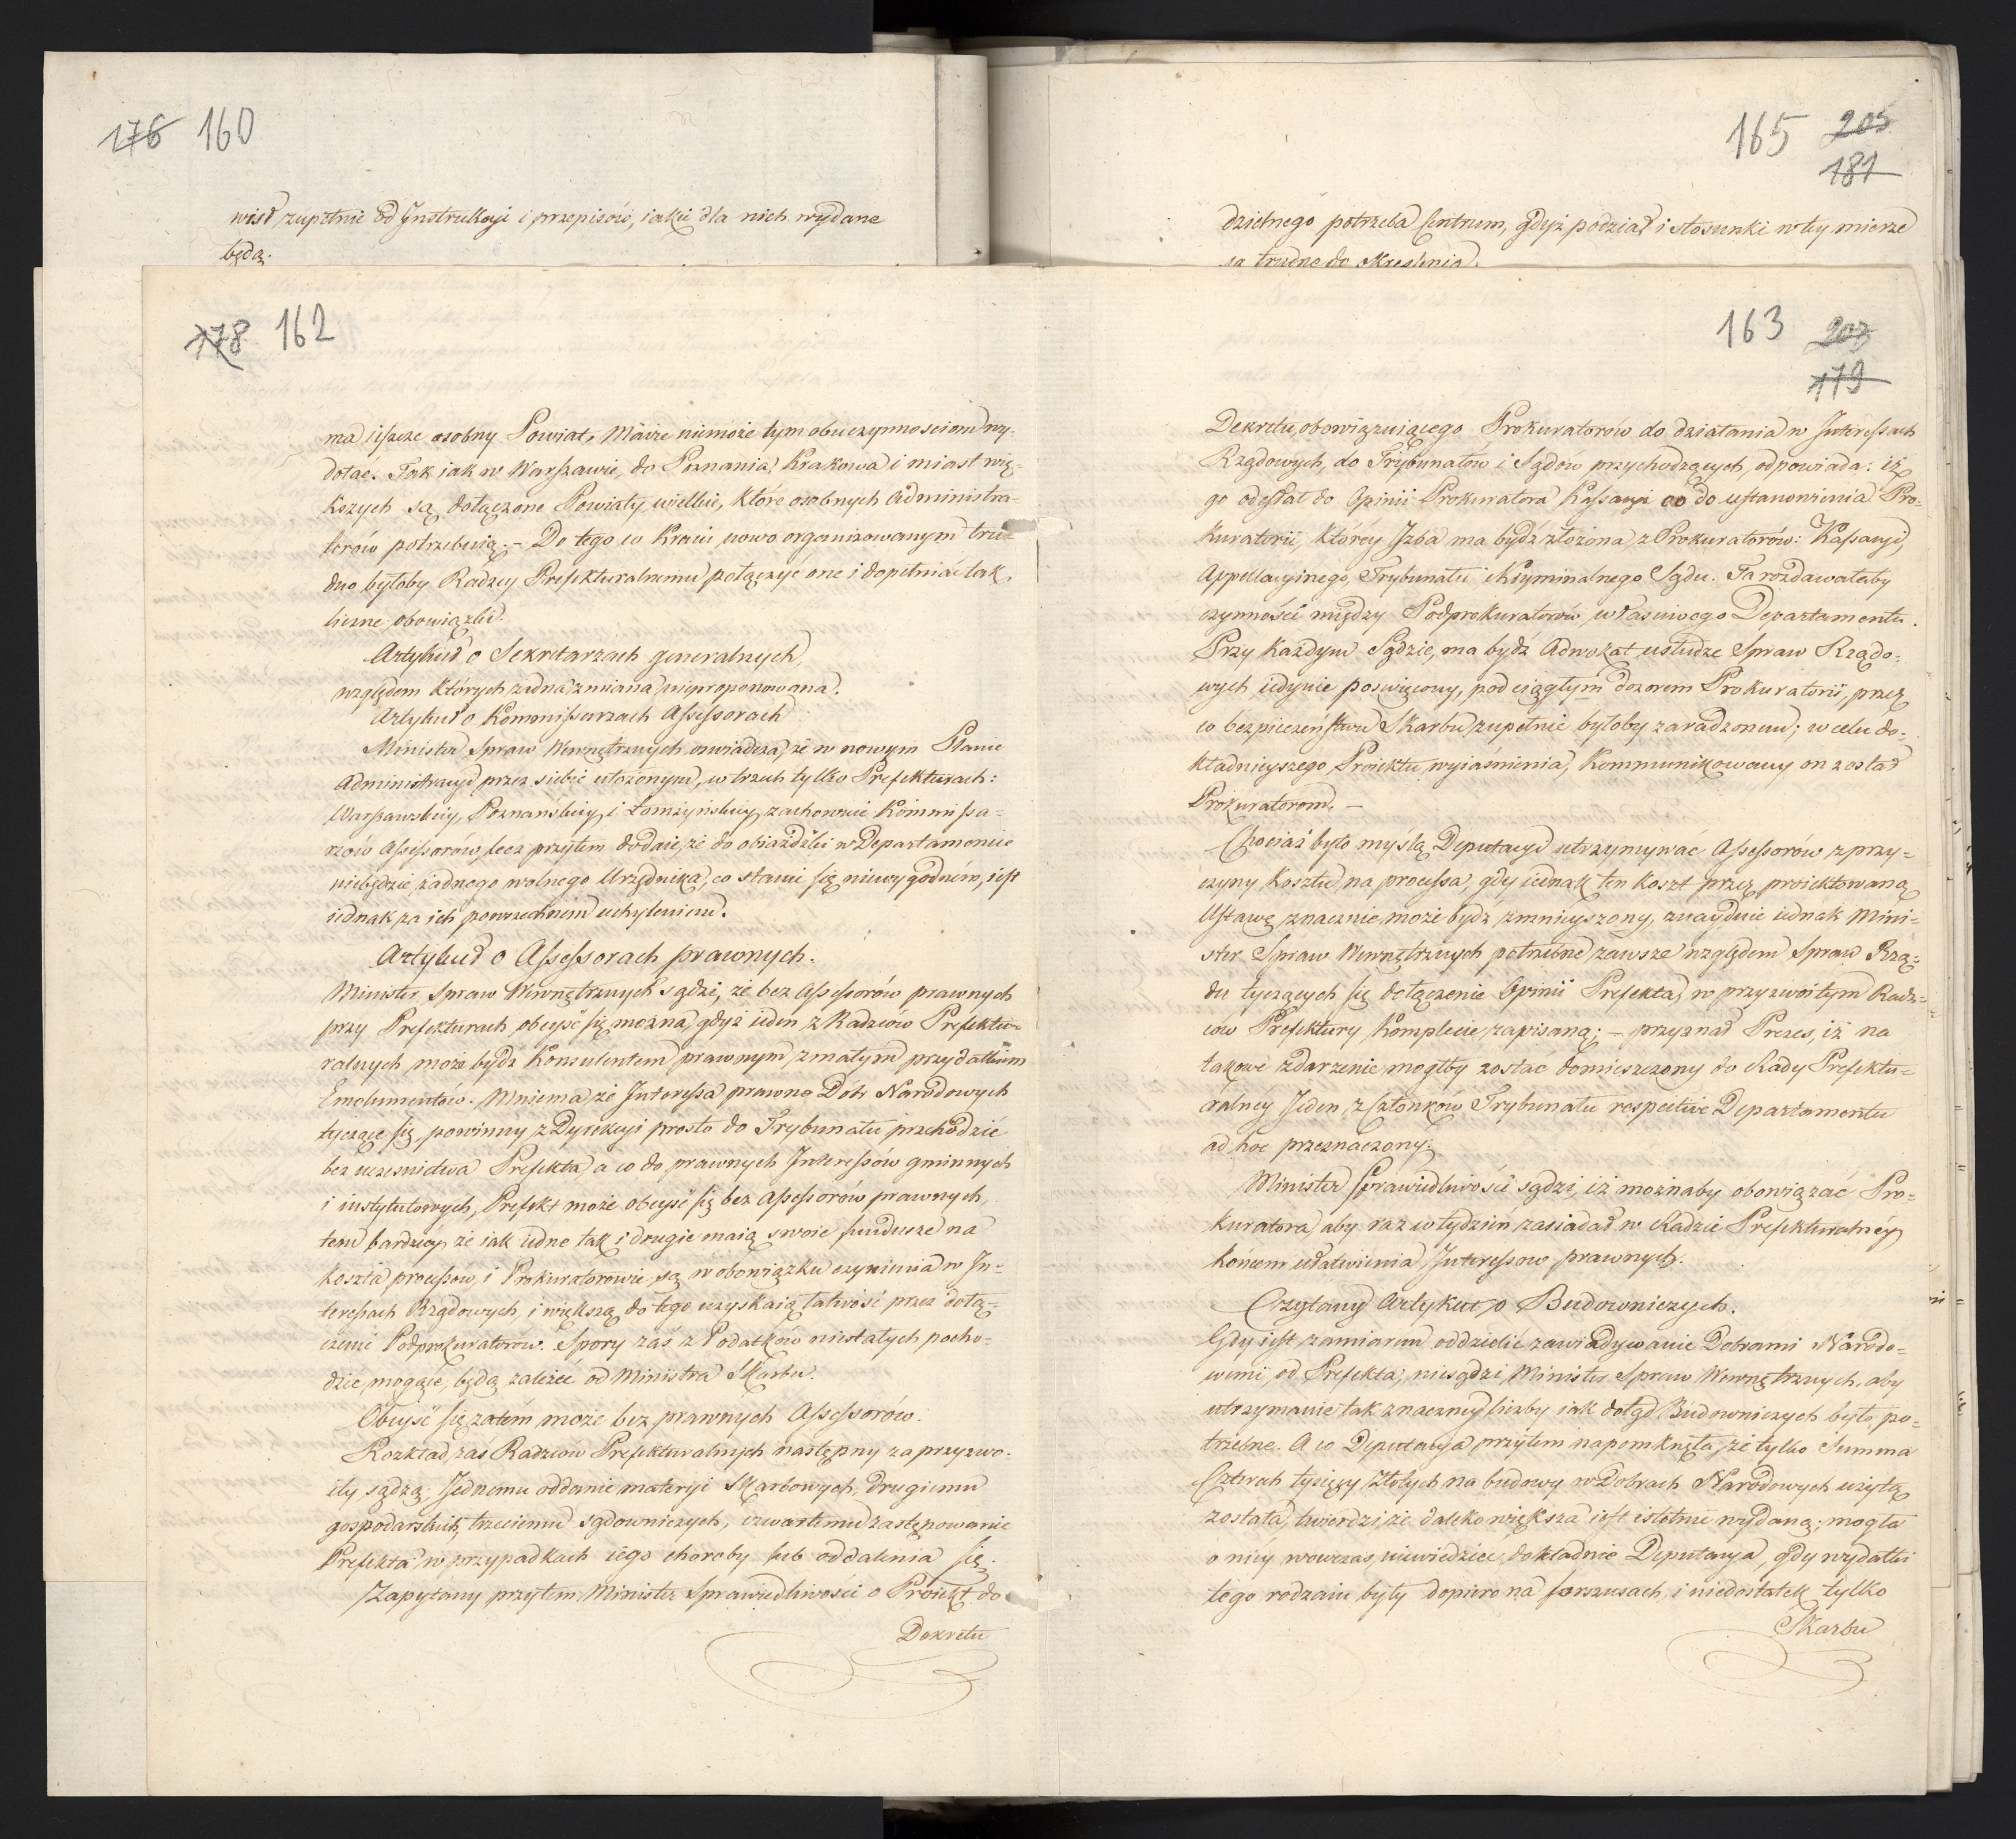 176 160
wisł zupełnie od Jnstrukcyi i przepisów, iakie dla nich wydane
będą.
165 205
181
dzielnego potrzeba Centrum, gdyż podział i stosunki w tey mierze
są trudne do określenia.
178 162
ma ieszcze osobny Powiat, Maire niemoże tym obu czynnościom wy-
dołać. Tak iak w Warszawie, do Poznania, Krakowa i miast wię-
kszych są dołączone Powiaty wielkie, które osobnych Administra-
torów potrzebuią. – Do tego w Kraiu nowo organizowanym tru-
dno byłoby Radzcy Prefekturalnemu połączyć one i dopełniać tak
liczne obowiązki.
Artykuł o Sekretarzach generalnych,
względem których żadna zmiana nieproponowana.
Artykuł o Kommissarzach Assessorach
Minister Spraw Wewnętrznych oswiadcza, że w nowym Planie
Administracyi przez siebie ułożonym, w trzech tylko Prefekturach:
Warszawskiey, Poznańskiey i Łomżyńskiey zachowuie Kommissa-
rzów Assessorów, lecz przytem dodaie, że do obiażdżki w Departamencie
niebędzie żadnego wolnego Urzędnika, co stawi się niewygodném, iest
iednak za ich powszechném uchyleniem.
Artykuł o Assessorach prawnych.
Minister Spraw Wewnętrznych sądzi, że bez Assessorów prawnych
przy Prefekturach obeyść się można, gdyż ieden z Radzców Prefektu-
ralnych może bydź Konsulentem prawnym z małym przydatkiem
Emolumentów. Mniema, że Jnteressa prawne Dóbr Narodowych
tyczące się, powinny z Dyrekcyi prosto do Trybunału przechodzić
bez uczesnictwa Prefekta, a co do prawnych Jnteressów gminnych
i instytutowych, Prefekt może obeyść się bez Assessorów prawnych,
tem bardziey że iak iedne tak i drugie maią swoie fundusze na
koszta processów, i Prokuratorowie są w obowiązku czynienia w Jn-
teressach Rządowych, i większą do tego uzyskaią łatwość przez dołą-
czenie Podprokuratorów. Spory zaś z Podatków niestałych pocho-
dzić mogące, będą zależeć od Ministra Skarbu.
Obeyść się zatém może bez prawnych Assessorów.
Rozkład zaś Radzców Prefekturalnych następny za przyzwo-
ity sądzą: Jednemu oddanie materyi Skarbowych, drugiemu
gospodarskich, trzeciemu sądowniczych, czwartemu zastępowanie
Prefekta w przypadkach iego choroby lub oddalenia się.
Zapytany przytem Minister Sprawiedliwości o Proiekt do
Dekretu
163 203
179
Dekretu, obowiązuiącego Prokuratorów do działania w Jnteressach
Rządowych, do Trybunałów i Sądów przychodzących, odpowiada: iż
go odesłał do Opinii Prokuratora Kassacyi co do ustanowienia Pro-
kuratorii, któréy Jzba ma bydź złożona z Prokuratorów: Kassacyi,
Appellacyinego, Trybunału i Kryminalnego Sądu. Ta rozdawałaby
czynności między Podprokuratorów właściwego Departamentu.
Przy każdym Sądzie, ma bydź Adwokat usłudze Spraw Rządo-
wych iedynie poswięcony, pod ciągłym dozorem Prokuratorii, przez
co bezpieczeństwu Skarbu zupełnie byłoby zaradzonem; w celu do-
kładnieyszego Proiektu wyiaśnienia, Kommunikowany on został
Prokuratorom. –
Chociaż było myślą Deputacyi utrzymywać Assessorów z przy-
czyny kosztu na processa, gdy iednak ten koszt przez proiektowaną
Ustawę znacznie może bydź zmnieyszony, znayduie iednak Mini-
ster Spraw Wewnętrznych potrzebne zawsze względem Spraw Rzą-
du tyczących się dołączenie Opinii Prefekta, w przyzwoitym Radz-
ców Prefektury Komplecie zapisaną; – przyznał Prezes, iż na
takowe zdarzenie mogłby zostać domieszczony do Rady Prefektu-
ralney Jeden z Członków Trybunału respective Departamentu
ad hoc przeznaczony.
Minister Sprawiedliwości sądzi, iż możnaby obowiązać Pro-
kuratora aby raz w tydzień zasiadał w Radzie Prefekturalnéy
końcem ułatwienia Jnteressow prawnych.
Czytany Artykuł o Budowniczych.
Gdy iest zamiarem oddzielić zawiadywanie Dobrami Narodo-
wemi od Prefekta, niesądzi Minister Spraw Wewnętrznych, aby
utrzymanie tak znaczney liczby iak dotąd Budowniczych było po-
trzebne. A co Deputacya przytem napomknęła, że tylko Summa
Czterech tysięcy Złotych na budowy w Dobrach Narodowych użytą
została, twierdzi że daleko większa iest istotnie wydaną; mogła
o niéy wowczas niewiedzieć dokładnie Deputacya, gdy wydatki
tego rodzaiu były dopiero na forszusach, i niedostatek tylko
Skarbu